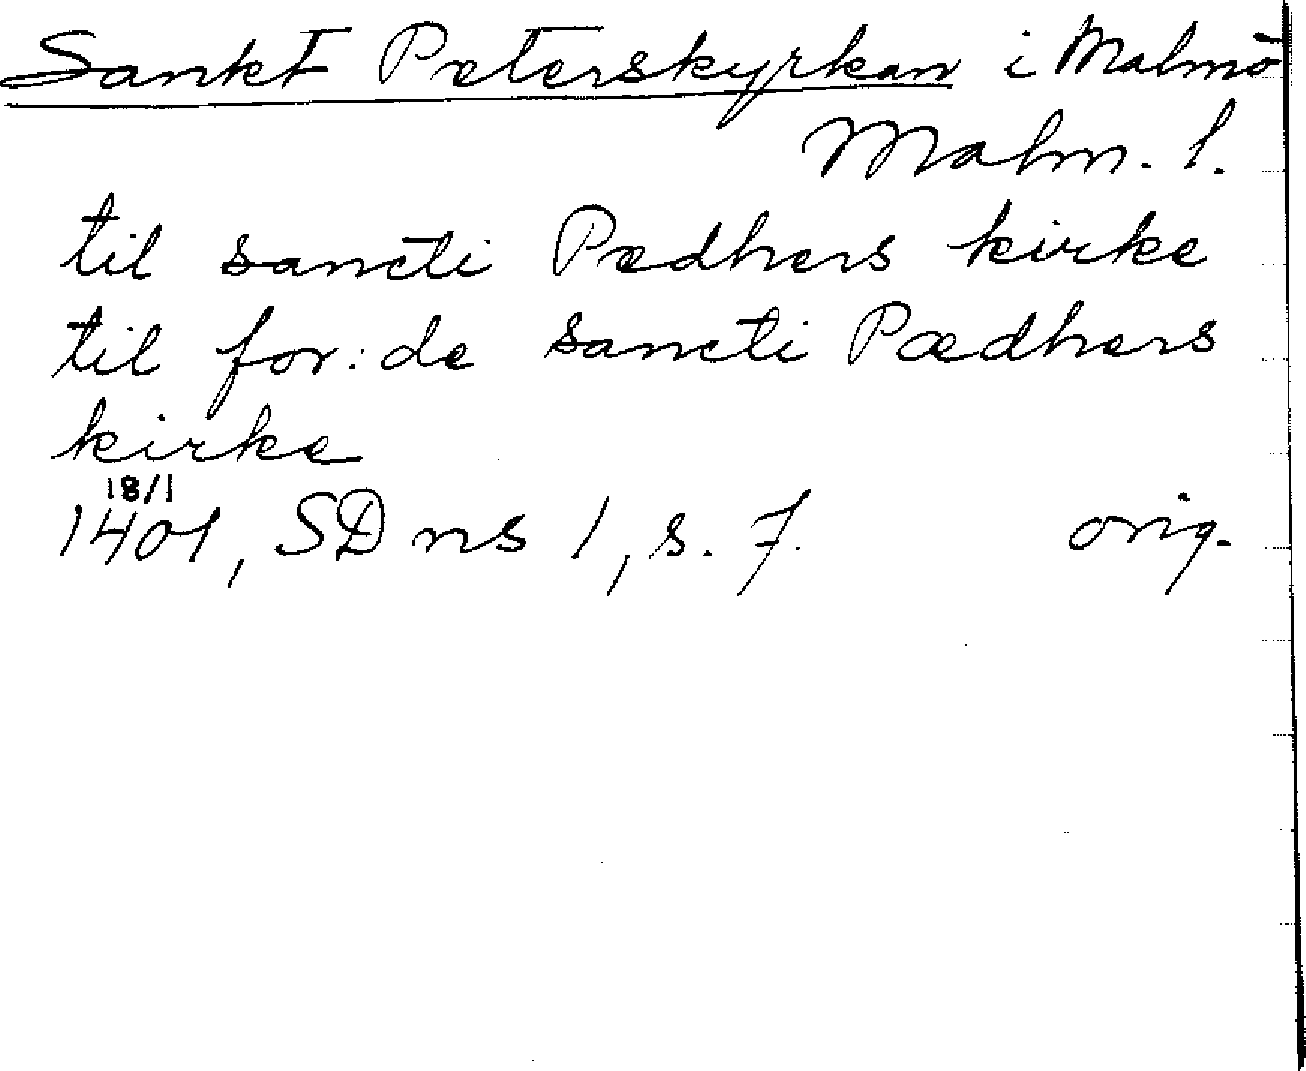 Sankt Peterskyrkan i Malmö
Malm. l.
til sancti Pædhers kirke
til for: de sancti Pædhers
kirke
18/1
1401, SD ns 1, s. 7. orig.